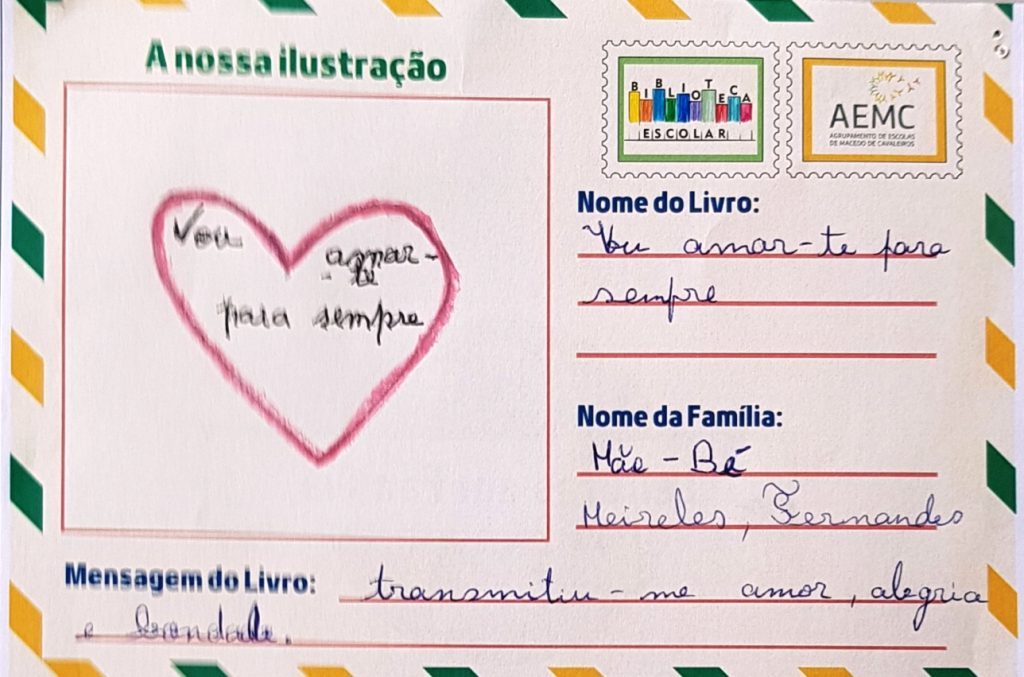 A nossa ilustração
BIBLIOTECA
ESCOLAR
AEMC
AGRUPAMENTO DE ESCOLAS
DE MACEDO DE CAVALEIROS
Vou
amar-
te
para sempre
Nome do Livro:
Vou amar-te para
sempre
Nome da Família:
Mãe - Bé
Meireles, Fernandes
Mensagem do Livro: transmitiu-me amor, alegria
e bondade.